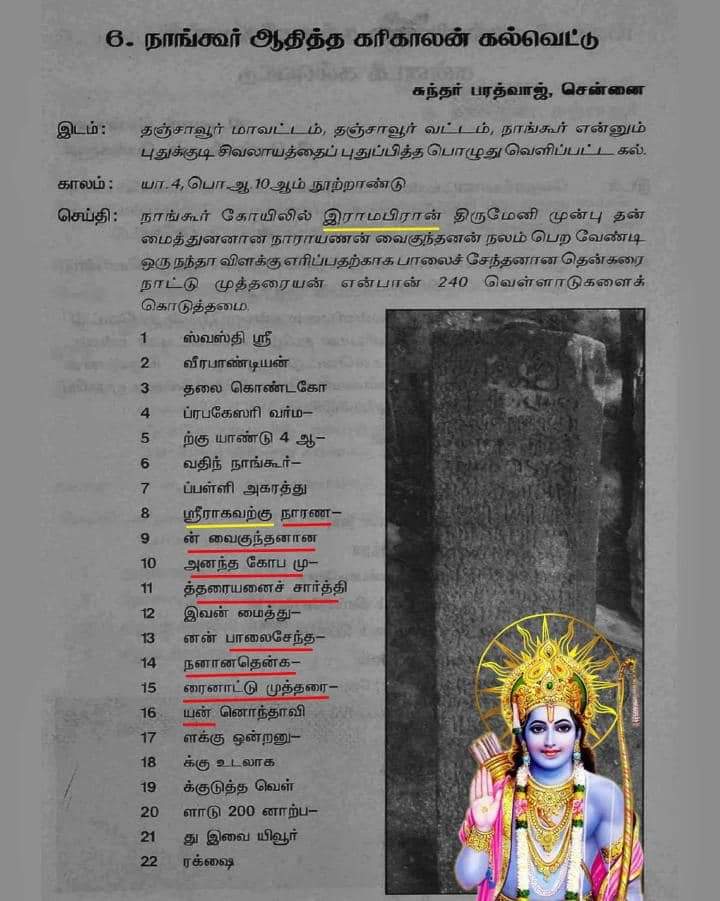 6. நாங்கூர் ஆதித்த கரிகாலன் கல்வெட்டு
சுந்தர் பரத்வாஜ், சென்னை
இடம்: தஞ்சாவூர் மாவட்டம், தஞ்சாவூர் வட்டம், நாங்கூர் என்னும்
புதுக்குடி சிவலாயத்தைப் புதுப்பித்த பொழுது வெளிப்பட்ட கல்.
காலம்: யா. 4, பொ.ஆ. 10ஆம் நூற்றாண்டு
செய்தி: நாங்கூர் கோயிலில் இராமபிரான் திருமேனி முன்பு தன்
மைத்துனனான நாராயணன் வைகுந்தனன் நலம் பெற வேண்டி
ஒரு நந்தா விளக்கு எரிப்பதற்காக பாலைச் சேந்தனான தென்கரை
நாட்டு முத்தரையன் என்பான் 240 வெள்ளாடுகளைக்
கொடுத்தமை.
1 ஸ்வஸ்தி ஸ்ரீ
2 வீரபாண்டியன்
3 தலை கொண்டகோ
4 ப்ரபகேஸரி வர்ம–
5 ற்கு யாண்டு 4 ஆ–
6 வதிந் நாங்கூர்–
7 ப்பள்ளி அகரத்து
8 ஸ்ரீராகவற்கு நாரண–
9 ன் வைகுந்தனான
10 அனந்த கோப மு–
11 த்தரையனைச் சார்த்தி
12 இவன் மைத்து–
13 னன் பாலைசேந்த–
14 நனானதென்க–
15 ரைனாட்டு முத்தரை–
16 யன் னொந்தாவி
17 ளக்கு ஒன்றனு–
18 க்கு உடலாக
19 க்குடுத்த வெள்
20 ளாடு 200 னாற்ப–
21 து இவை யிவூர்
22 ரக்ஷை